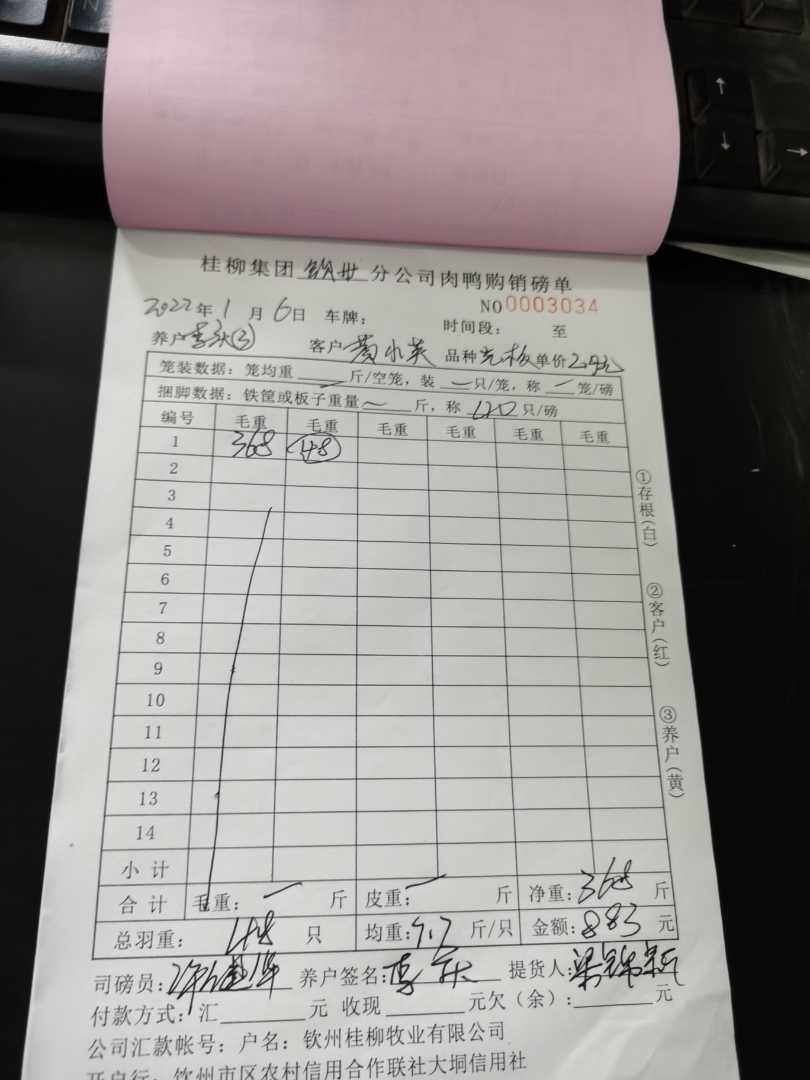 桂柳集团钦州分公司肉鸭购销磅单
NO0003034
2022年1月6日 车牌： 时间段： 至
养户李庆③ 客户黄小英 品种 单价2.4元
笼装数据：笼均重 斤/空笼，装一只/笼，称一笼/磅
捆脚数据：铁筐或板子重量 斤，称 只/磅
编号 毛重 毛重 毛重 毛重 毛重 毛重
1 368 48
2
3
4
5
6
7
8
9
10
11
12
13
14
小计
合计 毛重：一斤 皮重：一斤 净重：368斤
总羽重：48只 均重：7.7斤/只 金额：883元
司磅员： 养户签名：李庆 提货人：梁
付款方式：汇 元 收现 元欠（余）： 元
公司汇款帐号：户名：钦州桂柳牧业有限公司
开户行：钦州市区农村信用合作联社大垌信用社
①存根（白）
②客户（红）
③养户（黄）